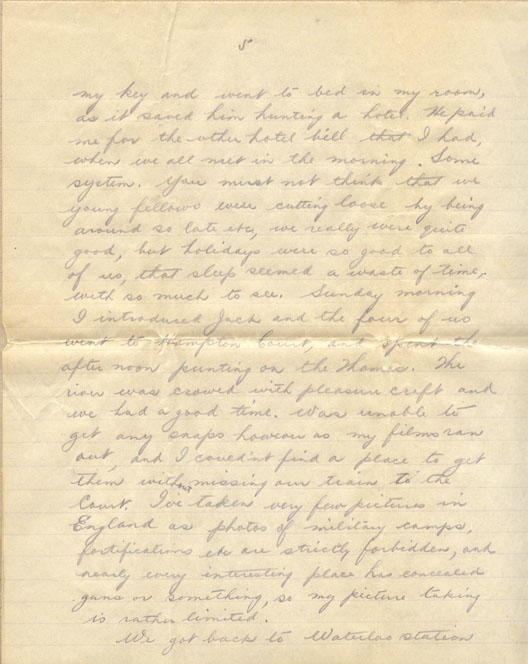 5
my key and went to bed in my room,
as it saved him hunting a hotel. He paid
me for the other hotel bill that I had,
when we all met in the morning. Some
system. You must not think that we
young fellows were cutting loose by being
around so late etc, we really were quite
good, but holidays were so good to all
of us, that sleep seemed a waste of time,
with so much to see. Sunday morning
I introduced Jack and the four of us
went to Hampton Court, and spent the
after noon punting on the Thames. The
river was crowed with pleasure creft and
we had a good time. Was unable to
get any snaps however as my films ran
out, and I couldn't find a place to get
them without missing our train to the
Court. I've taken very few pictures in
England as photos of military camps,
fortifications etc are strictly forbidden, and
nearly every interesting place has concealed
guns or something, so my picture taking
is rather limited.
We got back to Waterloo station